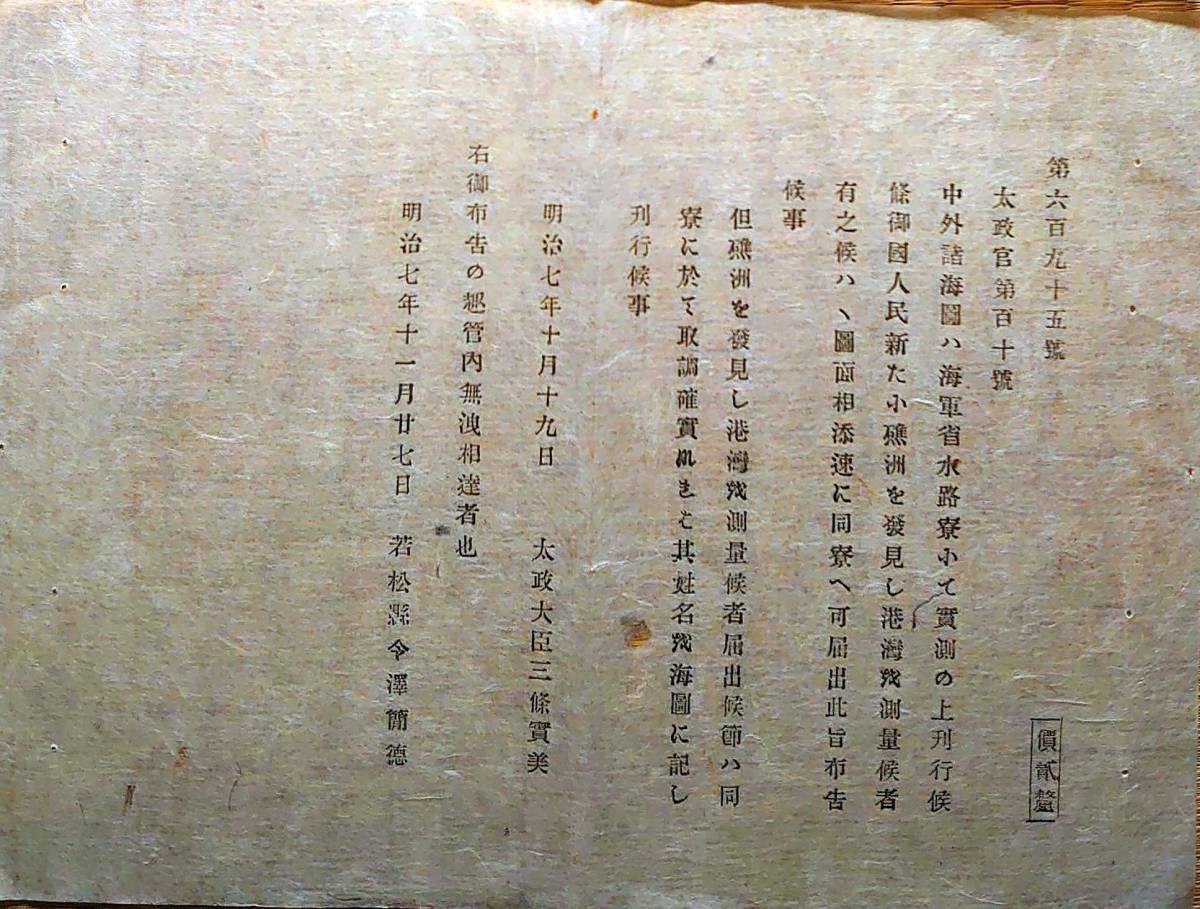 第六百九十五號
價貳釐
太政官第百十號
中外諸海圖ハ海軍省水路寮小て實測の上刊行候
條御國人民新た小礁洲を發見し港灣或測量候者
有之候ハヽ圖面相添速に同寮ヘ可屆出此旨布告
候事
但礁洲を發見し港灣或測量候者屆出候節ハ同
寮に於て取調確實なるときハ其姓名を海圖に記し
刊行候事
明治七年十月十九日 太政大臣三條實美
右御布告の趣管內無洩相達者也
明治七年十一月廿七日 若松縣令澤簡德